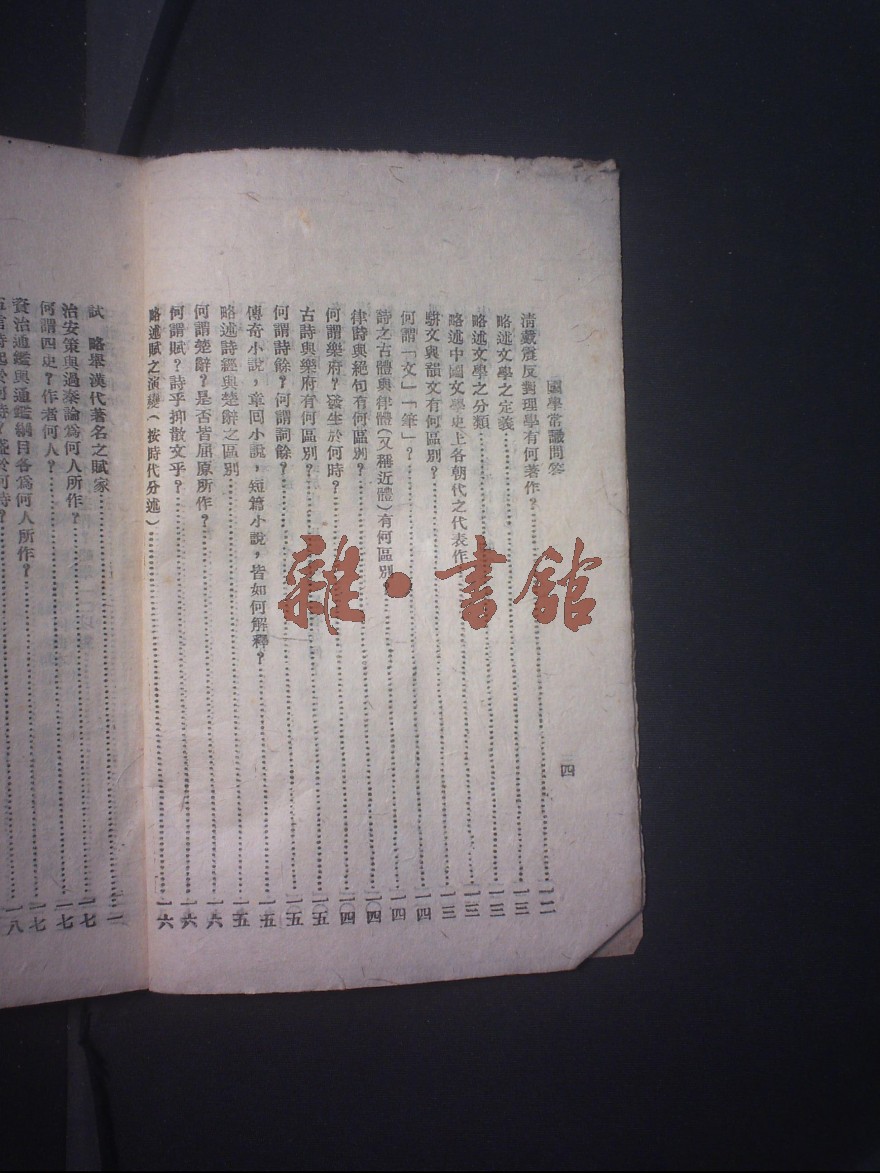 國學常識問答
四
清戴震反對理學有何著作？
一二
略述文學之定義
一三
略述文學之分類
一三
略述中國文學史上各朝代之代表作
一三
駢文與韻文有何區別？
一四
何謂「文」「筆」？
一四
詩之古體與律體（又稱近體）有何區別？
律詩與絕句有何區別？
何謂樂府？盛生於何時？
古詩與樂府有何區別？
何謂詩餘？何謂詞餘？
一五
傳奇小說，章回小說，短篇小說，皆如何解釋？
一五
略述詩經與楚辭之區別
一五
何謂楚辭？是否皆屈原所作？
一六
何謂賦？詩乎抑散文乎？
一六
略述賦之演變（按時代分述）
一六
試 略舉漢代著名之賦家
治安策與過秦論為何人所作？
一七
何謂四史？作者何人？
一七
資治通鑑與通鑑綱目各為何人所作？
一七
一八
雜·書館